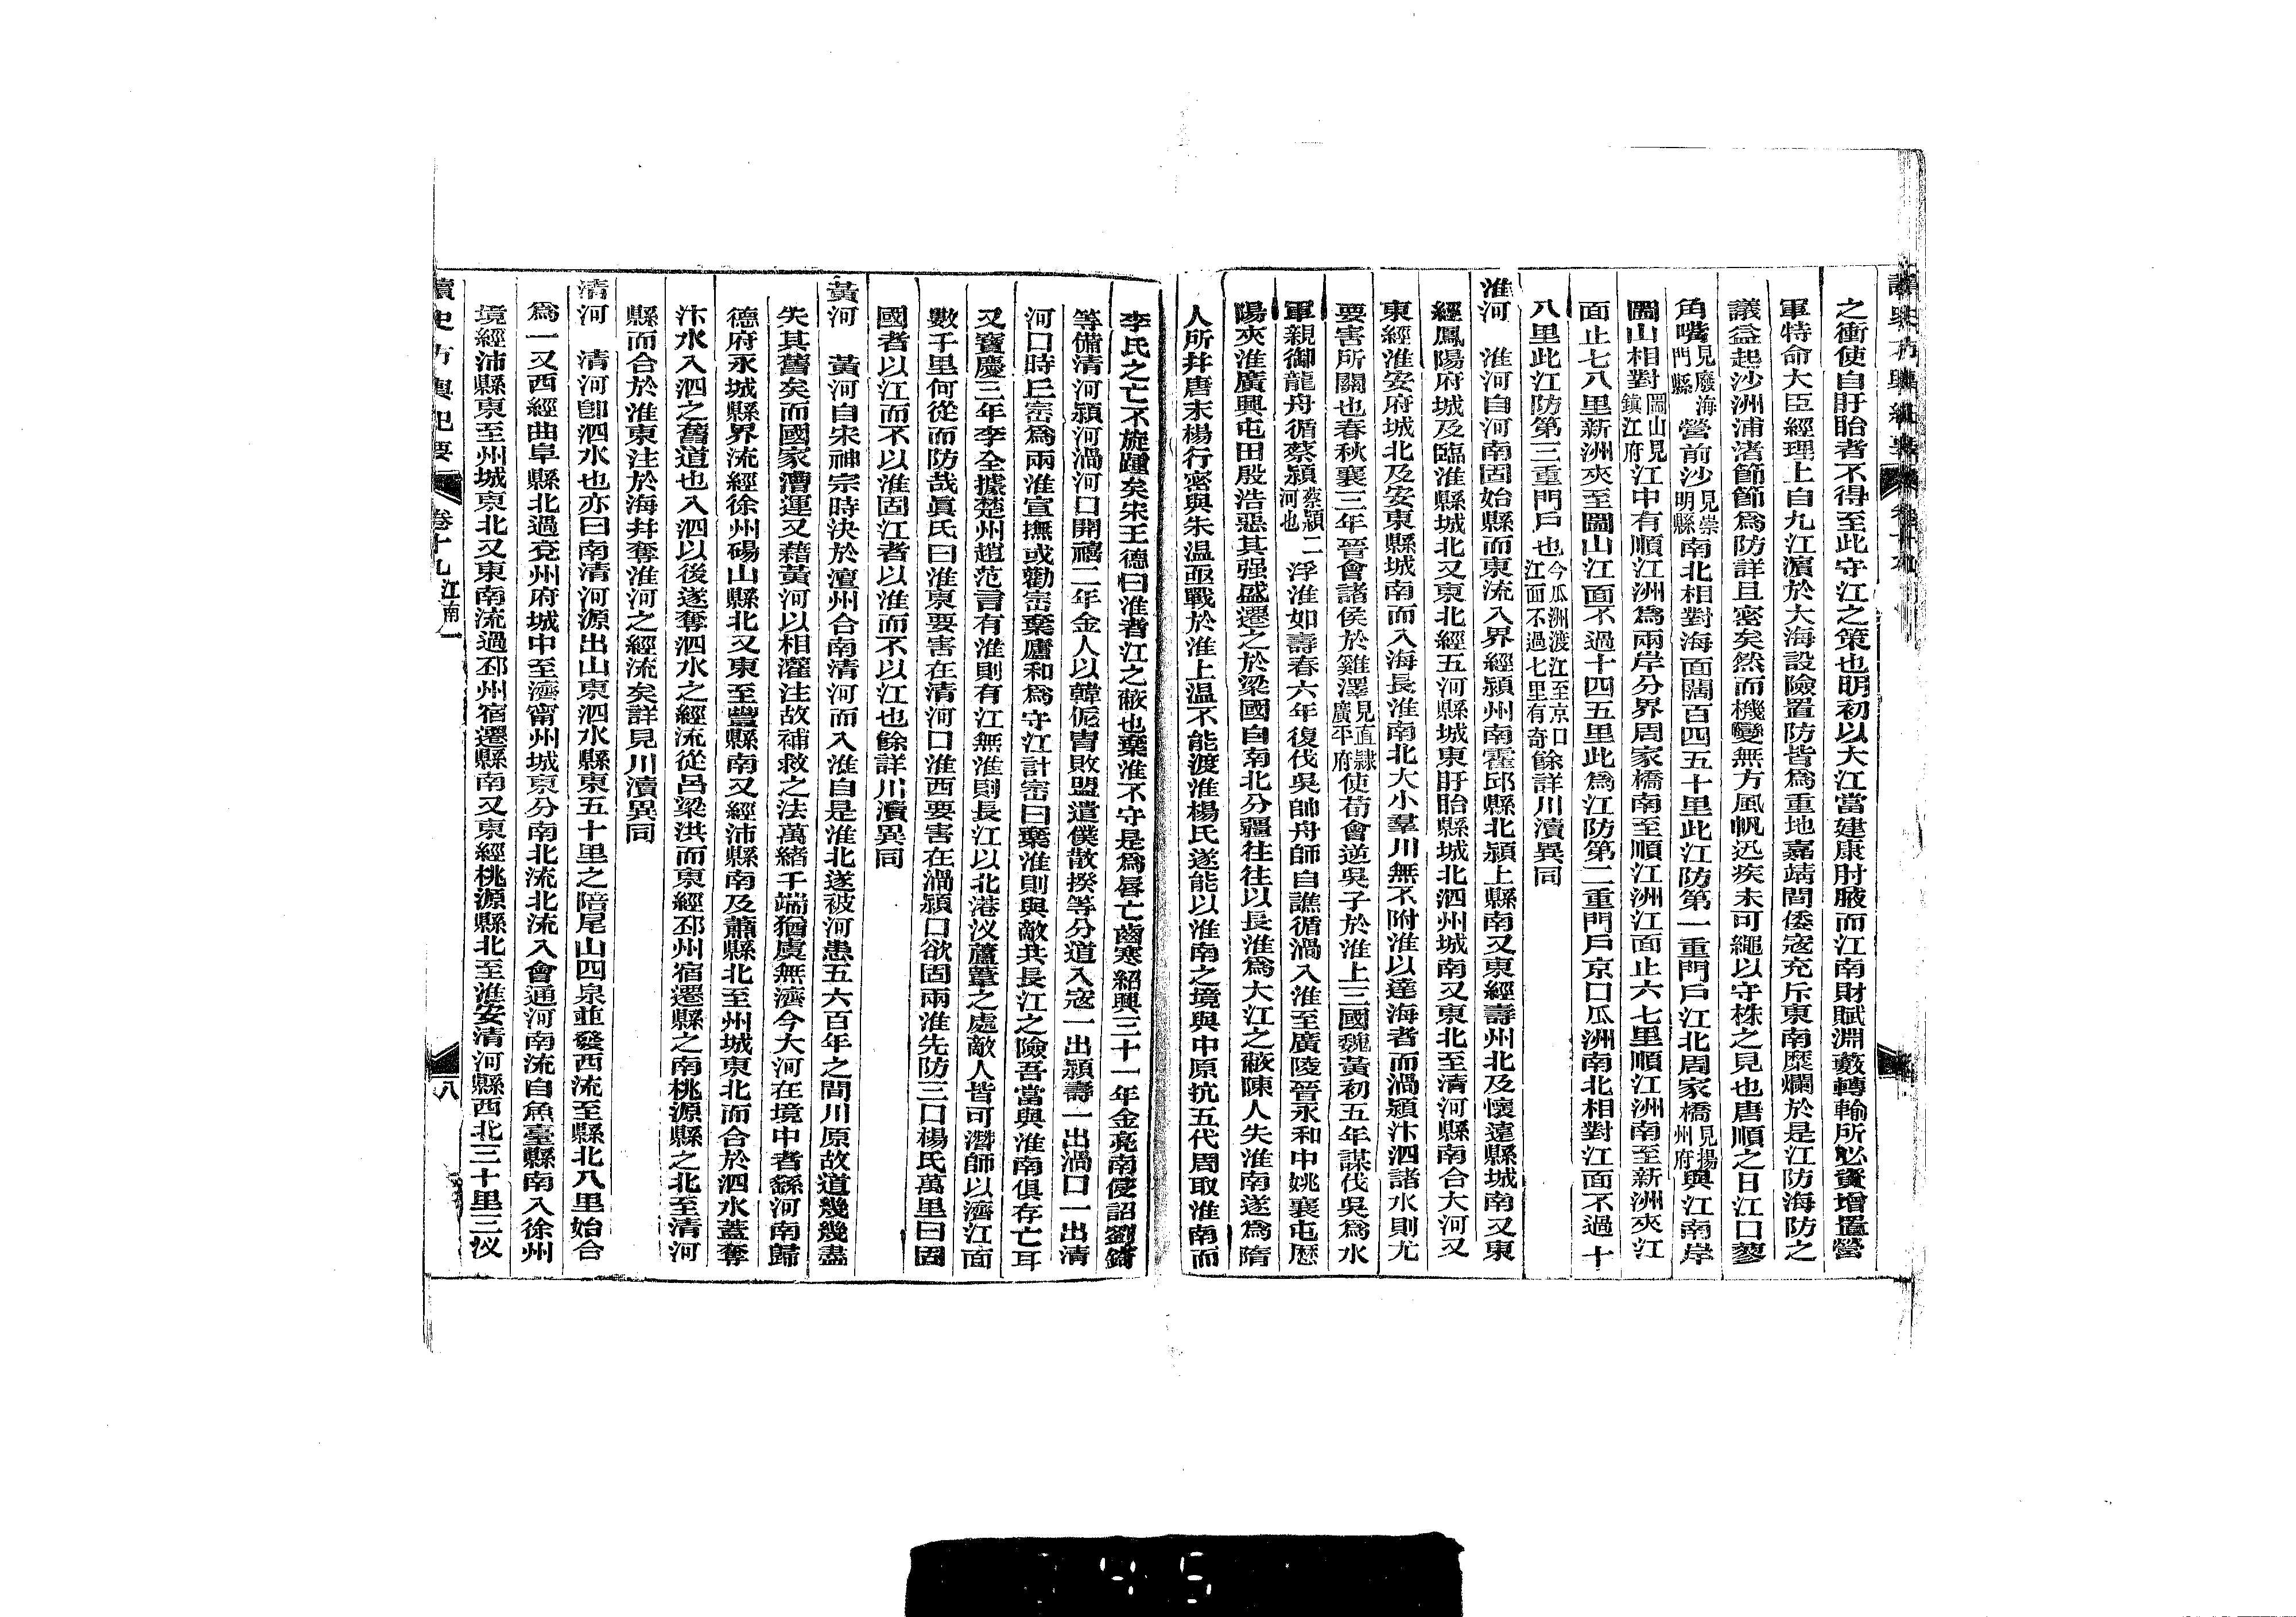 之衝使自盱眙者不得至此守江之策也明初以大江當建康肘腋而江南財賦淵藪轉輸所必資增置營
軍特命大臣經理上自九江濱於大海設險置防皆為重地嘉靖間倭寇充斥東南糜爛於是江防海防之
議益起沙洲浦渚節節為防詳且密矣然而機變無方風帆迅疾未可繩以守株之見也唐順之曰江口蓼
角嘴見廢海門縣營前沙見崇明縣南北相對海面闊百四五十里此江防第一重門戶江北周家橋見揚州府與江南岸
圌山相對圌山見鎮江府江中有順江洲為兩岸分界周家橋南至順江洲江面止六七里順江洲南至新洲夾江
面止七八里新洲夾至圌山江面不過十四五里此為江防第二重門戶京口瓜洲南北相對江面不過十
八里此江防第三重門戶也今瓜洲渡江至京口江面不過七里有奇餘詳川瀆異同
淮河　淮河自河南固始縣而東流入界經潁州南霍邱縣北潁上縣南又東經壽州北及懷遠縣城南又東
經鳳陽府城及臨淮縣城北又東北經五河縣城東盱眙縣城北泗州城南又東北至清河縣南合大河又
東經淮安府城北及安東縣城南而入海長淮南北大小羣川無不附淮以達海者而渦潁汴泗諸水則尤
要害所關也春秋襄三年晉會諸侯於雞澤見直隸廣平府使荀會逆吳子於淮上三國魏黃初五年謀伐吳為水
軍親御龍舟循蔡潁蔡潁二河也浮淮如壽春六年復伐吳帥舟師自譙循渦入淮至廣陵晉永和中姚襄屯歷
陽夾淮廣興屯田殷浩惡其强盛遷之於梁國自南北分疆往往以長淮為大江之蔽陳人失淮南遂為隋
人所并唐末楊行密與朱温亟戰於淮上温不能渡淮楊氏遂能以淮南之境與中原抗五代周取淮南而
李氏之亡不旋踵矣宋王德曰淮者江之蔽也棄淮不守是為脣亡齒寒紹興三十一年金亮南侵詔劉錡
等備清河潁河渦河口開禧二年金人以韓侂胄敗盟遣僕散揆等分道入寇一出潁壽一出渦口一出清
河口時丘崈為兩淮宣撫或勸崈棄廬和為守江計崈曰棄淮則與敵共長江之險吾當與淮南俱存亡耳
又寶慶三年李全據楚州趙范言有淮則有江無淮則長江以北港汊蘆葦之處敵人皆可潛師以濟江面
數千里何從而防哉眞氏曰淮東要害在清河口淮西要害在渦潁口欲固兩淮先防三口楊氏萬里曰固
國者以江而不以淮固江者以淮而不以江也餘詳川瀆異同
黃河　黃河自宋神宗時決於澶州合南清河而入淮自是淮北遂被河患五六百年之間川原故道幾幾盡
失其舊矣而國家漕運又藉黃河以相灌注故補救之法萬緒千端猶虞無濟今大河在境中者繇河南歸
德府永城縣界流經徐州碭山縣北又東至豐縣南又經沛縣南及蕭縣北至州城東北而合於泗水蓋奪
汴水入泗之舊道也入泗以後遂奪泗水之經流從呂梁洪而東經邳州宿遷縣之南桃源縣之北至清河
縣而合於淮東注於海并奪淮河之經流矣詳見川瀆異同
清河　清河卽泗水也亦曰南清河源出山東泗水縣東五十里之陪尾山四泉並發西流至縣北八里始合
為一又西經曲阜縣北過兗州府城中至濟甯州城東分南北流北流入會通河南流自魚臺縣南入徐州
境經沛縣東至州城東北又東南流過邳州宿遷縣南又東經桃源縣北至淮安清河縣西北三十里三汊
讀史方輿紀要　卷十九　江南一　八
45